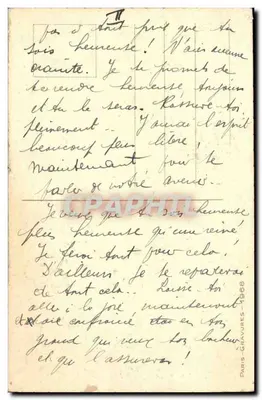 II
pas à tout prix que tu
sois heureuse! N'aie aucune
crainte. Je te promets de
te rendre heureuse toujours
et tu le seras. Rassure toi
pleinement. J'aurai l'esprit
beaucoup plus libre
maintenant pour te
parler de notre avenir
Je veux que tu sois heureuse
plus heureuse qu'une reine!
Je ferai tout pour cela!
D'ailleurs je te reparlerai
de tout cela. Laisse toi
aller à la joie maintenant
confiance en ton
grand qui veut ton bonheur
et qui l'assurera!
CPAPHIL
PARIS-GRAVURES-1968